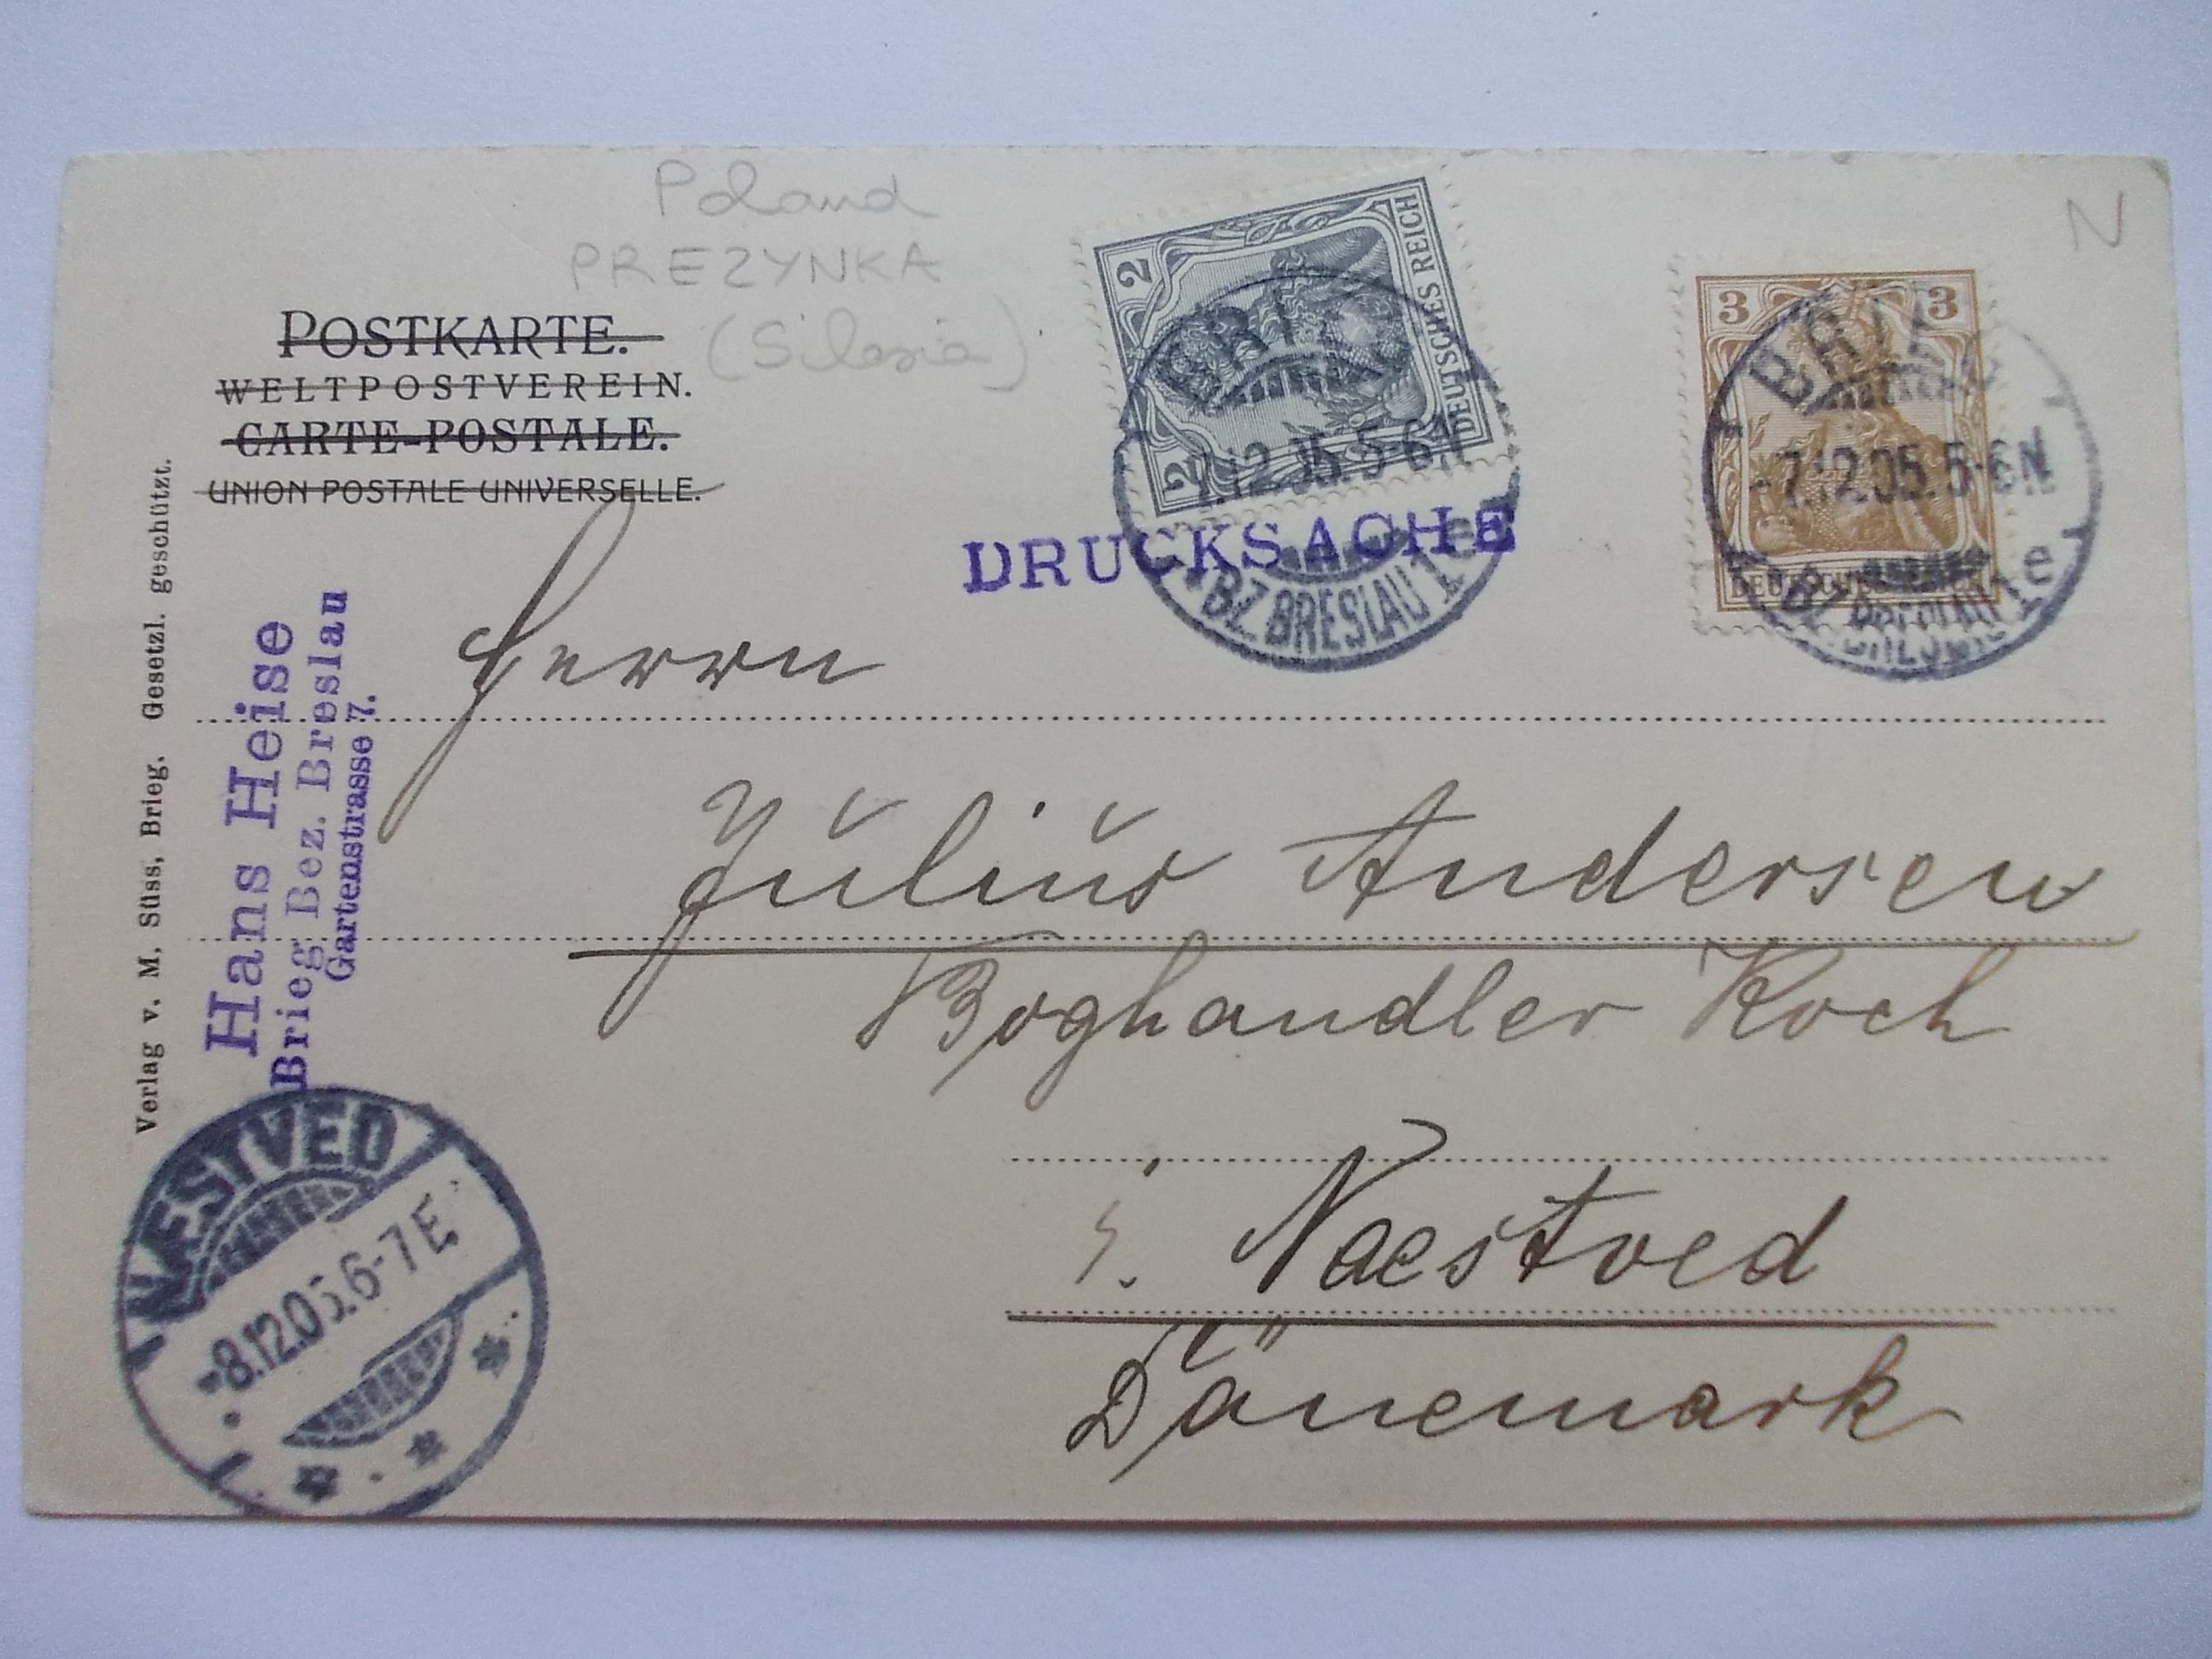 Poland
PREZYNKA
(Silesia)
N
POSTKARTE.
WELTPOSTVEREIN.
CARTE-POSTALE.
UNION POSTALE UNIVERSELLE.
2
2
DEUTSCHES REICH
BRIEG
7.12.05.5-6N
*BZ. BRESLAU 1e
3
3
BRIEG
-7.12.05.5-6N
*BZ. BRESLAU 1e
DRUCKSACHE
Verlag v. M. Süss, Brieg. Gesetzl. geschützt.
Hans Heise
Brieg Bez. Breslau
Gartenstrasse 7.
Herrn
Julius Andersen
Boghandler Koch
i. Naestved
Dänemark
NÆSTVED
-8.12.05.6-7E